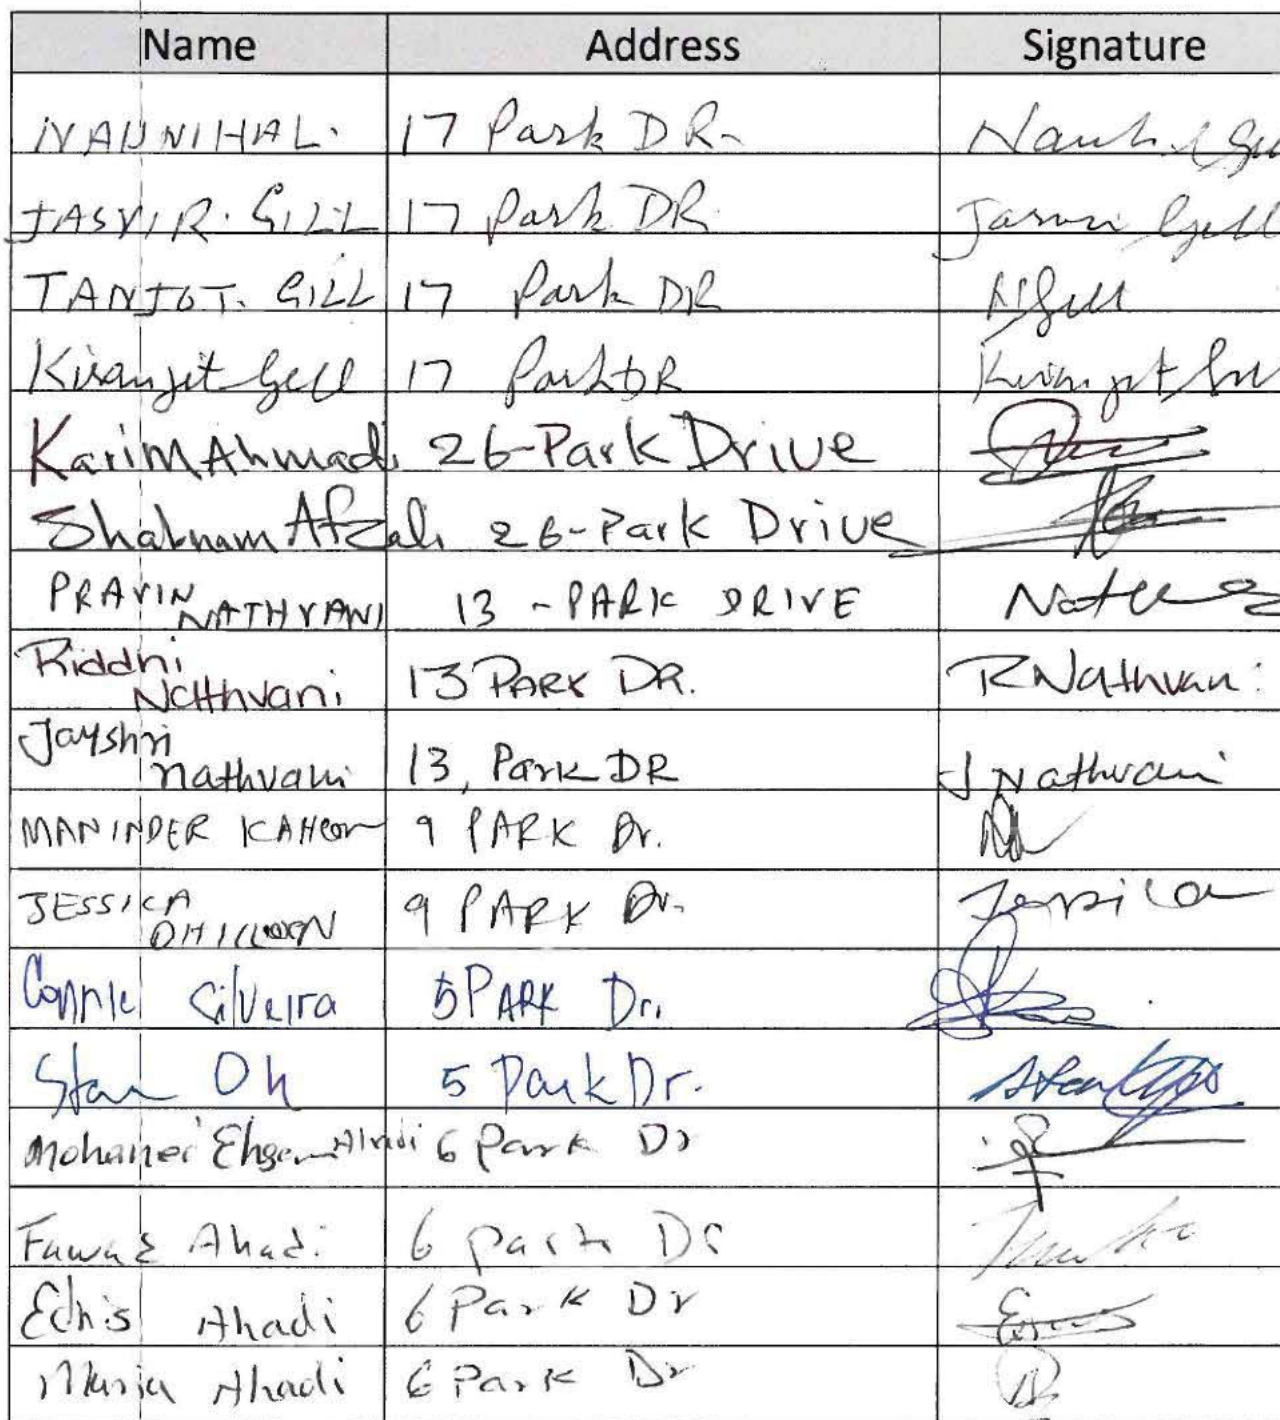 Name Address Signature
NAUNIHAL. 17 Park DR.
JASVIR. GILL 17 Park DR. Jasvir Gill
TANJOT. GILL 17 Park DR NGill
Kiranjit Gill 17 Park DR Kiranjit Gill
Karim Ahmadi 26-Park Drive
Shabnam Afzali 26-Park Drive
PRAVIN NATHVANI 13 - PARK DRIVE
Riddhi Nathvani 13 PARK DR. R Nathvani
Jayshri nathvani 13, Park DR J Nathvani
MANINDER KAHLON 9 PARK Dr.
JESSICA DHILLON 9 PARK Dr. Jessica
Connie Silveira 5 PARK Dr.
Stan Oh 5 Park Dr.
Ahadi 6 Park Dr
Fawad Ahadi 6 park Dr
Edris Ahadi 6 Park Dr
Maria Ahadi 6 Park Dr